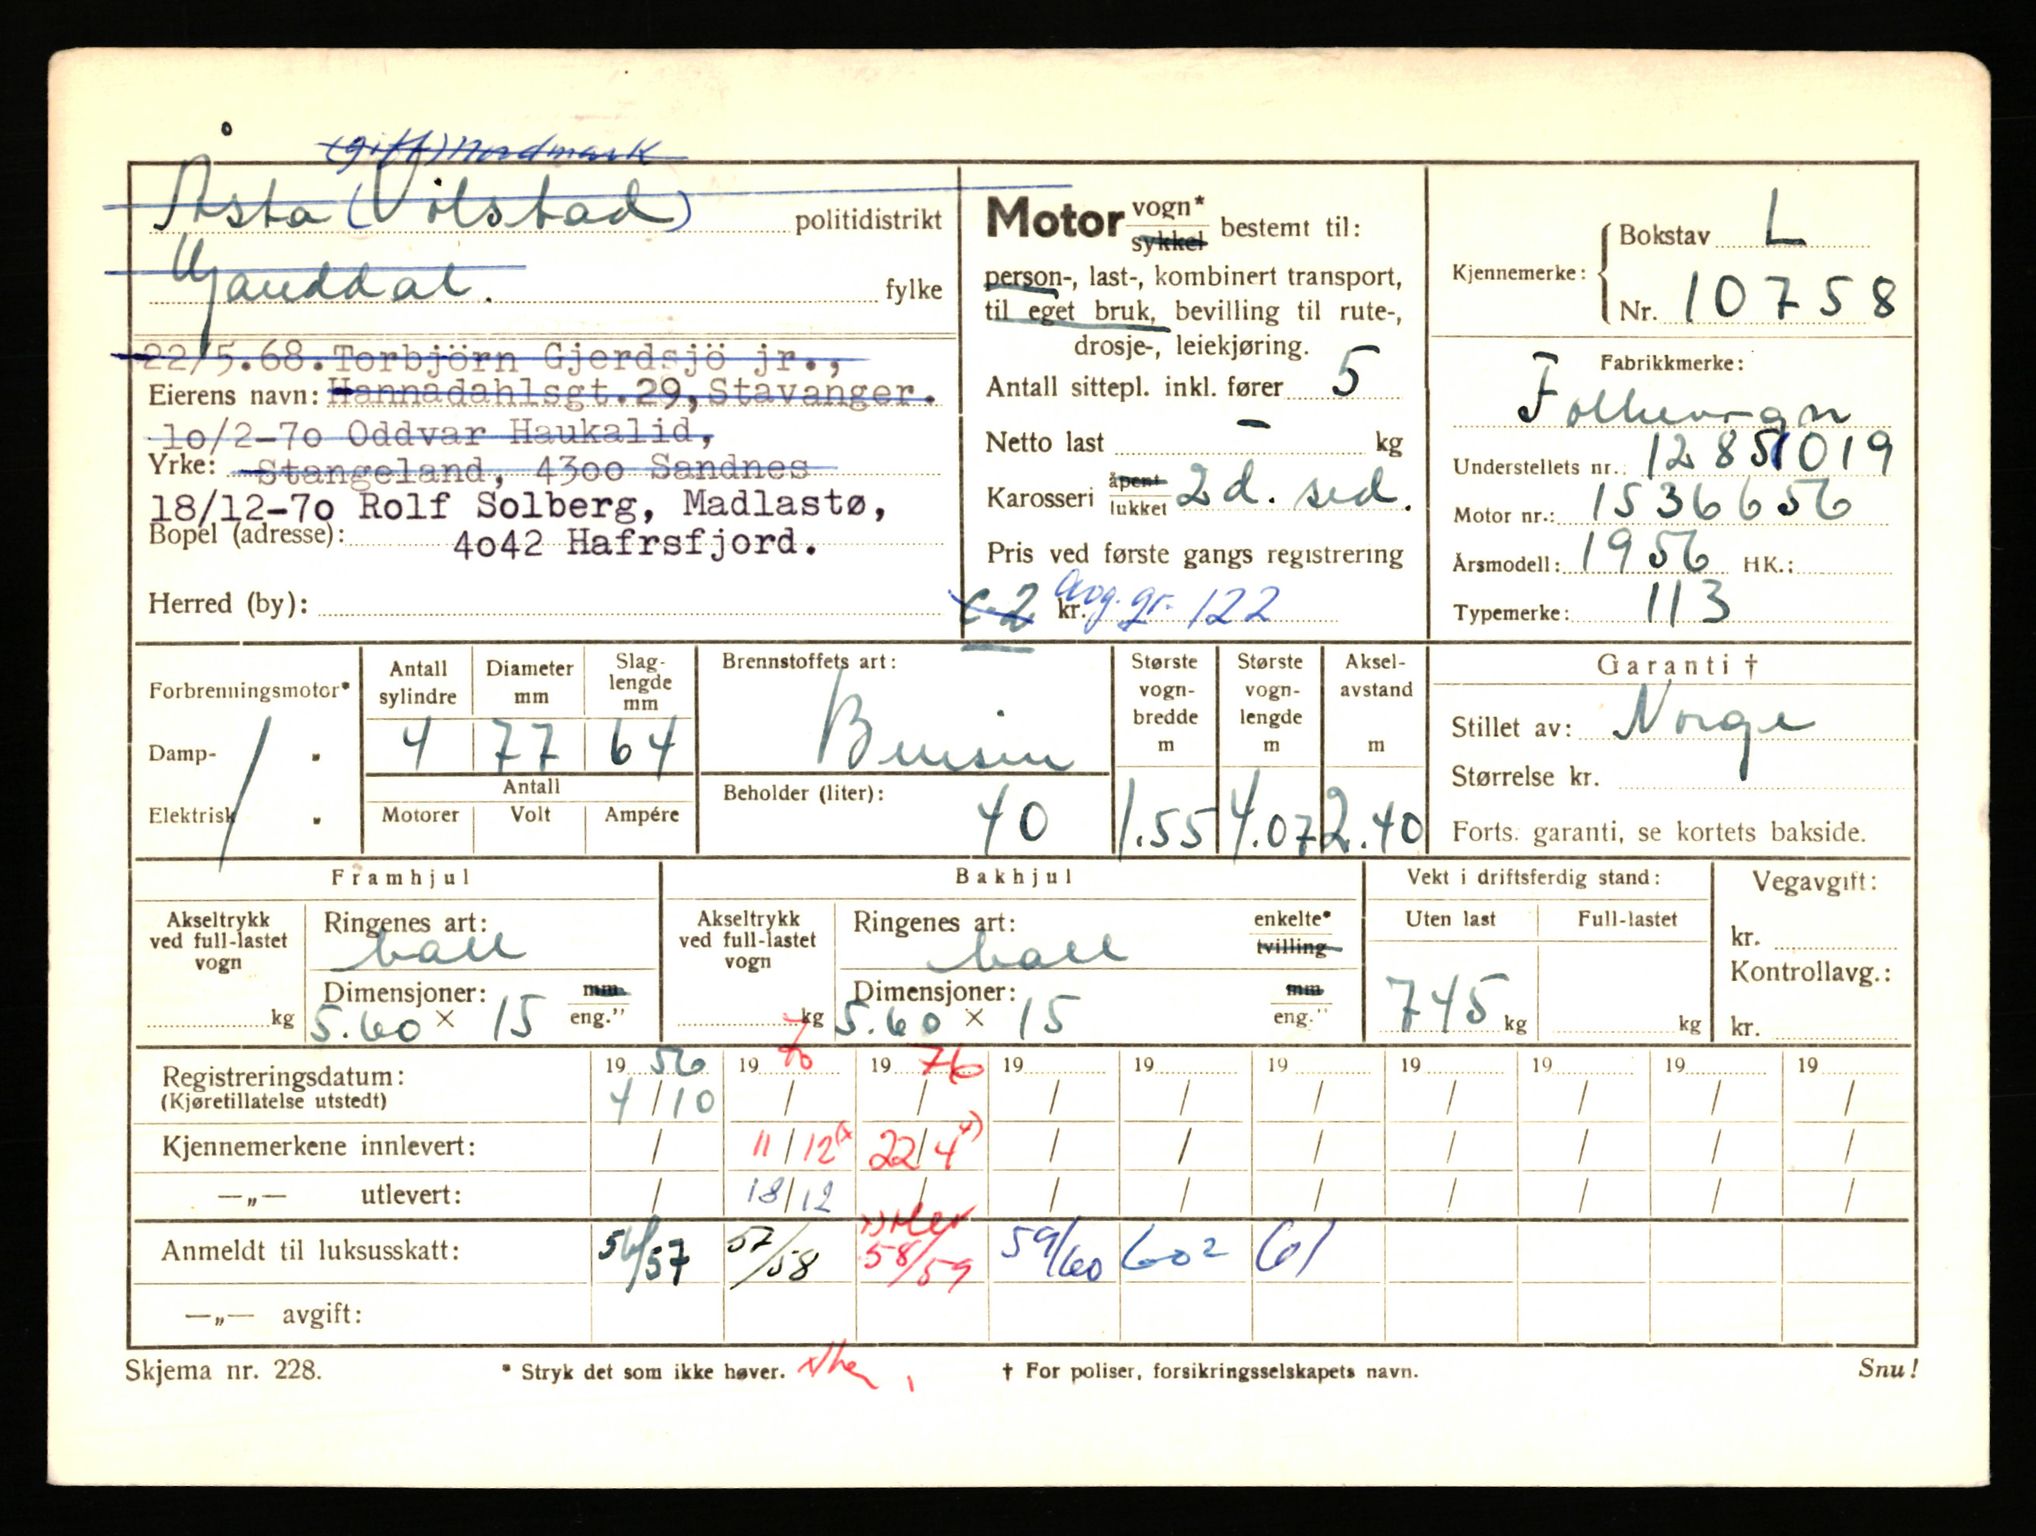 (gift) Nordmark
Åsta (Vilstad) politidistrikt
Ganddal. fylke
22/5.68. Torbjörn Gjerdsjö jr.,
Eierens navn: Hannadahlsgt. 29, Stavanger.
10/2-70 Oddvar Haukalid,
Yrke: Stangeland, 4300 Sandnes
18/12-70 Rolf Solberg, Madlastø,
Bopel (adresse): 4042 Hafrsfjord.
Herred (by):
Motor vogn* sykkel bestemt til:
person-, last-, kombinert transport,
til eget bruk, bevilling til rute-,
drosje-, leiekjøring.
Antall sittepl. inkl. fører 5
Netto last - kg
Karosseri åpent lukket 2 d. sed.
Pris ved første gangs registrering
c-2 kr. Avg. gr. 122
Kjennemerke: Bokstav L
Nr. 10758
Fabrikkmerke:
Folkevogn
Understellets nr.: 12851019
Motor nr.: 1536656
Årsmodell: 1956 HK.:
Typemerke: 113
Forbrenningsmotor*
Damp- "
Elektrisk "
Antall sylindre 4
Diameter mm 77
Slag- lengde mm 64
Antall
Motorer Volt Ampére
Brennstoffets art:
Bensin
Beholder (liter):
40
Største vogn- bredde m 1.55
Største vogn- lengde m 4.07
Aksel- avstand m 2.40
Garanti †
Stillet av: Norge
Størrelse kr.
Forts. garanti, se kortets bakside.
Framhjul
Akseltrykk ved full-lastet vogn kg
Ringenes art: ball
Dimensjoner: mm
5.60 × 15 eng."
Bakhjul
Akseltrykk ved full-lastet vogn kg
Ringenes art: ball enkelte* tvilling
Dimensjoner: mm
5.60 × 15 eng."
Vekt i driftsferdig stand:
Uten last Full-lastet
745 kg kg
Vegavgift:
kr.
Kontrollavg.:
kr.
Registreringsdatum: 19 56 19 70 19 76 19 19 19 19 19 19 19
(Kjøretillatelse utstedt) 4/10 / / / / / / / / /
Kjennemerkene innlevert: / 11/12 22/4 / / / / / / /
—„— utlevert: / 18/12 / / / / / / / /
Anmeldt til luksusskatt: 56/57 57/58 58/59 59/60 60² 61
—„— avgift:
Skjema nr. 228. * Stryk det som ikke høver. † For poliser, forsikringsselskapets navn. Snu!